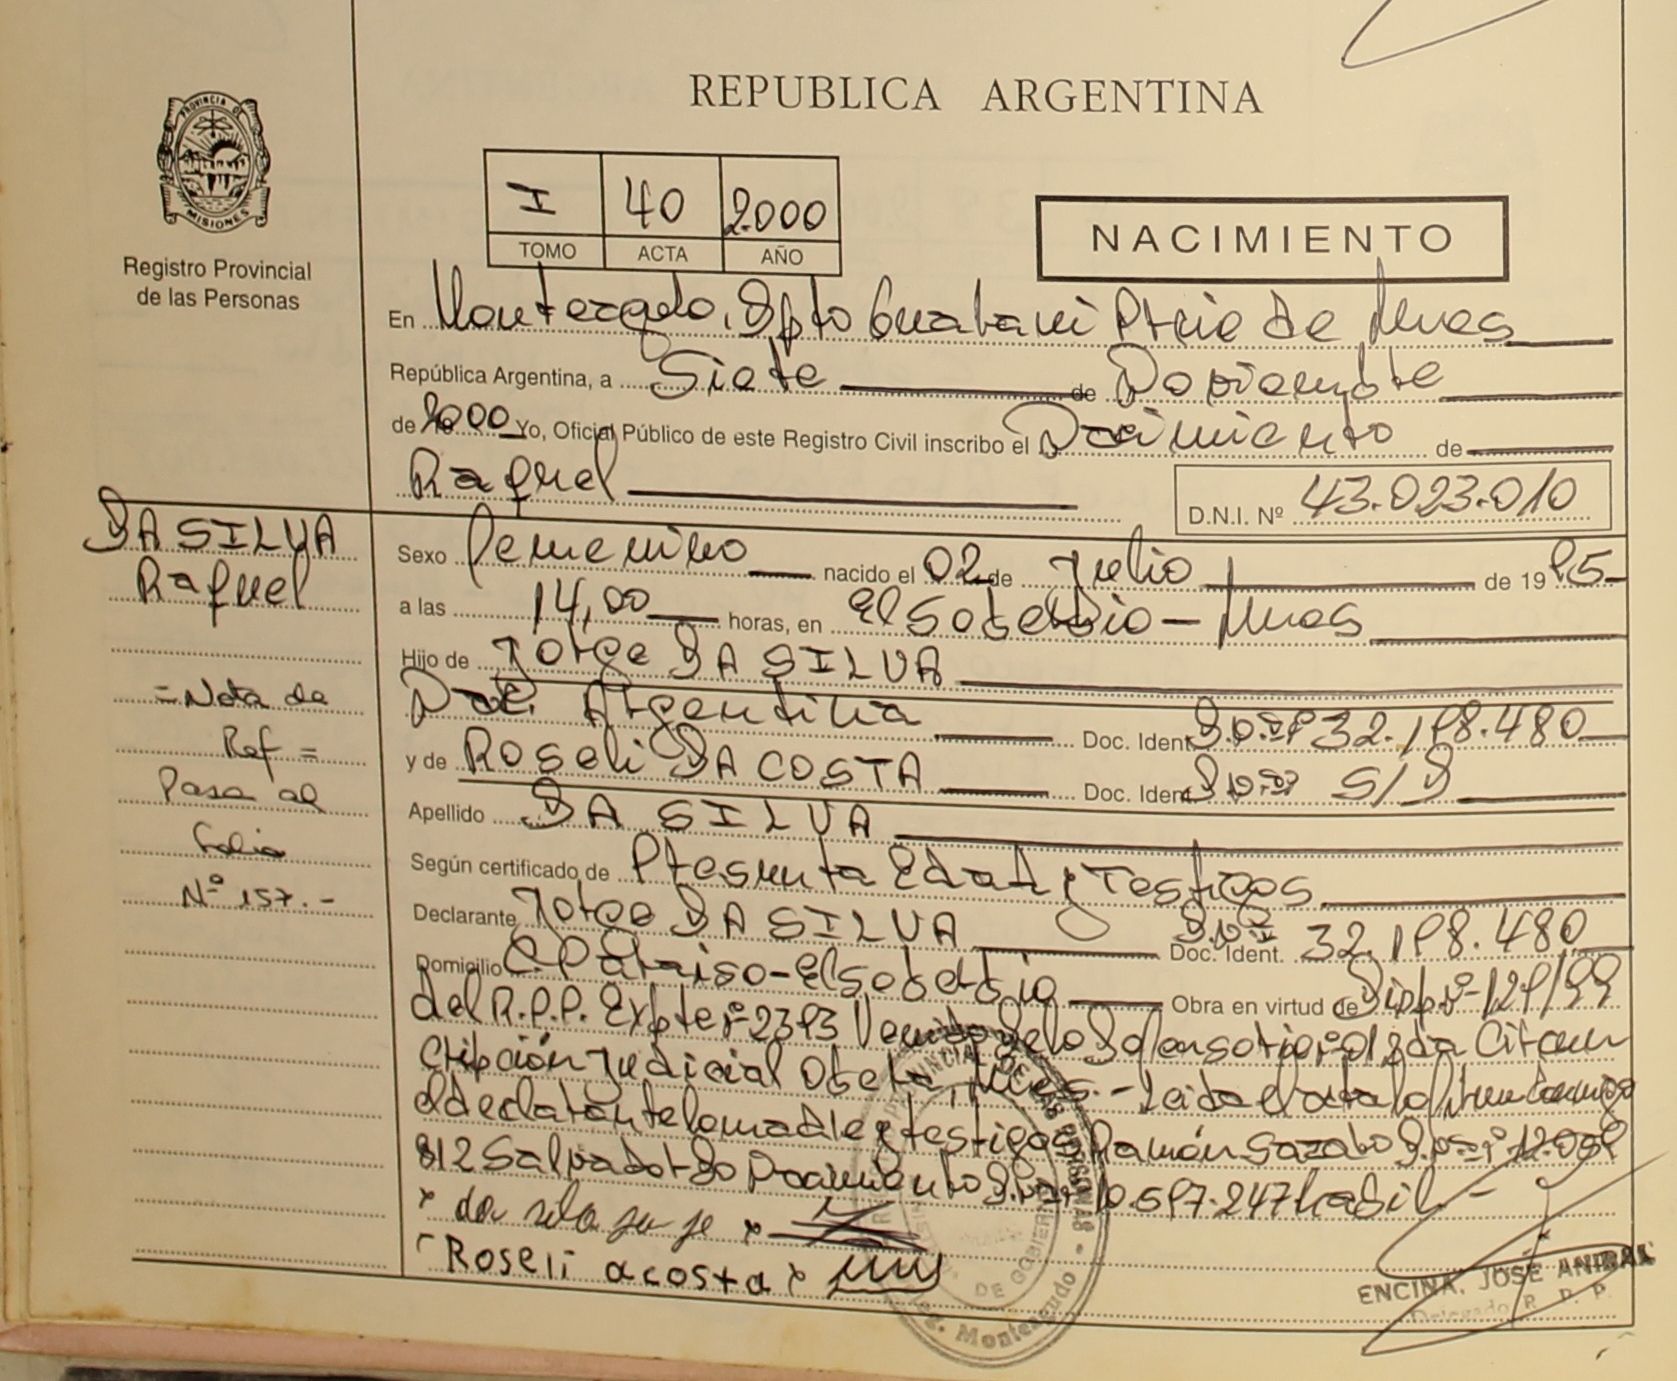 REPUBLICA ARGENTINA
PROVINCIA DE
MISIONES
Registro Provincial
de las Personas
I 40 2000
TOMO ACTA AÑO
NACIMIENTO
En Monteagudo, Dpto Guarani Pcie de Mnes
República Argentina, a Siete de Noviembre
de 2000 Yo, Oficial Público de este Registro Civil inscribo el Nacimiento de
Raquel
D.N.I. Nº 43.023.010
DA SILVA
Raquel
Sexo Femenino nacido el 02 de Julio de 19 95
a las 14,00 horas, en El Soberbio - Mnes
Hijo de Jorge DA SILVA
Nac. Argentina Doc. Ident. 32.198.480
y de Roseli DA COSTA Doc. Ident. S/D
Apellido DA SILVA
Según certificado de Presunta Edad y Testigos
Declarante Jorge DA SILVA Doc. Ident. 32.198.480
Domicilio C. Paraiso - El Soberbio Obra en virtud de Disp. Nº 129/99
del R.P.P. Expte Nº 2393 Defensoria Nº 01 2da Circuns
cripción Judicial Oberá, Mnes. - Leida el acta la
el declarante la madre y testigos Ramón
812 Salvador Do Nascimiento 10.597.247 habil -
x da silva x
Roseli acosta x
= Nota de
Ref =
Pasa al
Folio
Nº 157.-
PROVINCIAL DE LAS PERSONAS
DE GOBIERNO
Monteagudo
ENCINA, JOSÉ ANIBAL
Delegado R. P. P.